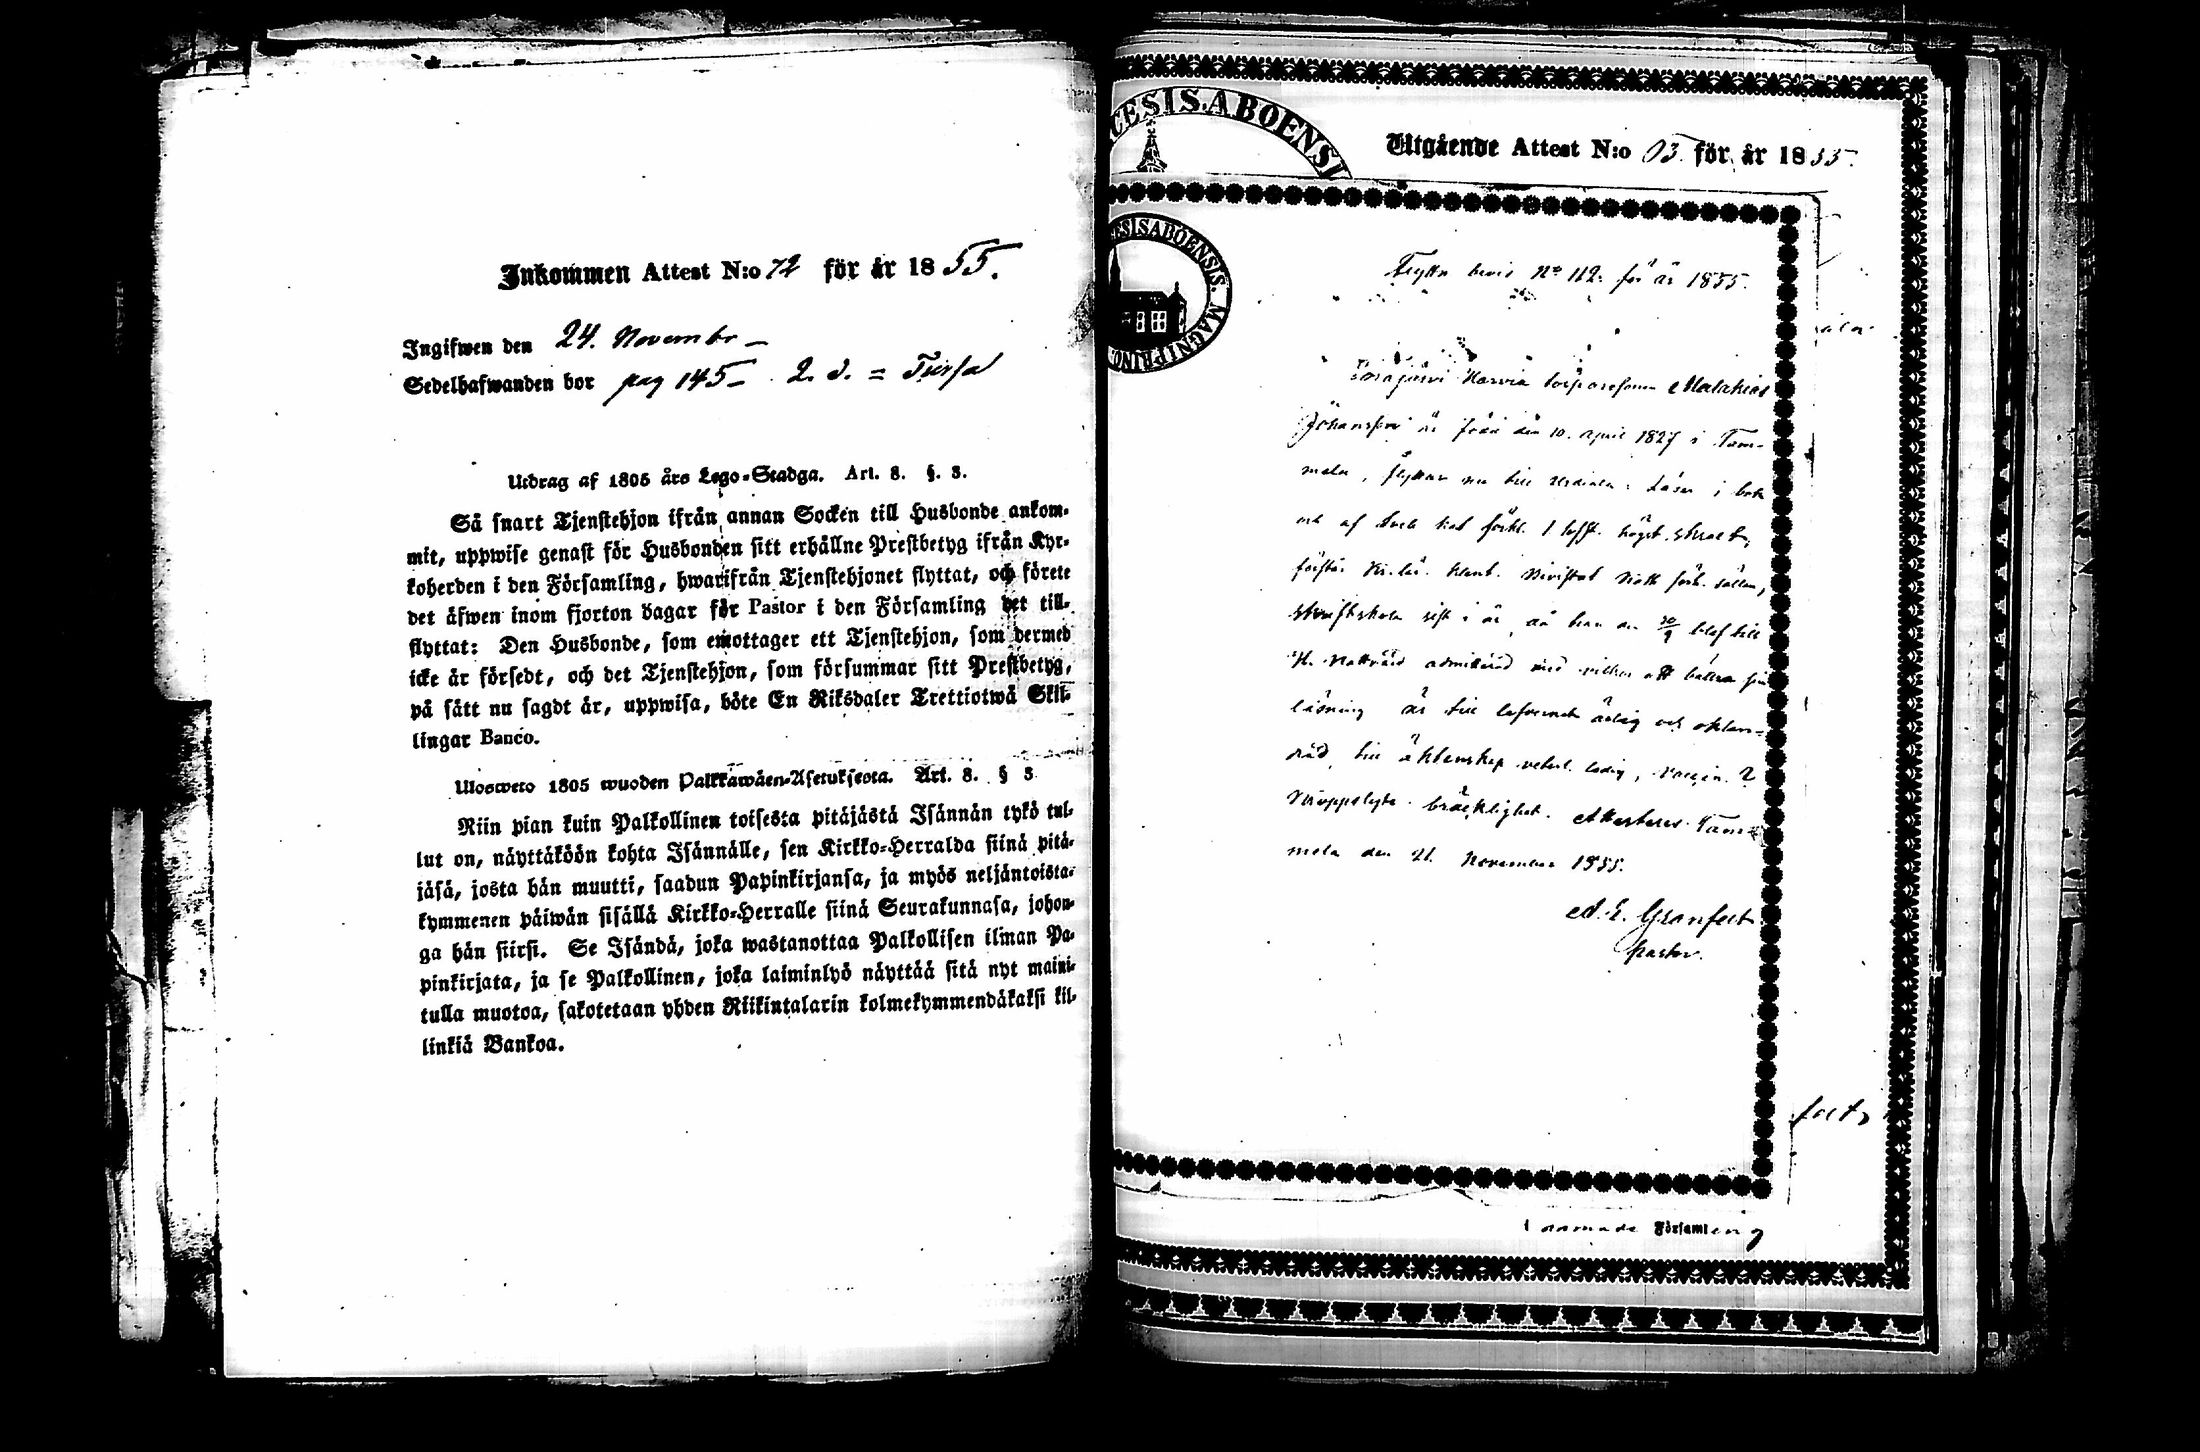 Inkommen Attest N:o 72 för år 1855.
Ingifwen den 24. Novembr
Sedelhafwanden bor pag 145 2. d. = Tursa
Utdrag af 1805 års Lego-Stadga. Art. 8. §. 3.
Så snart Tjenstehjon ifrån annan Socken till Husbonde ankom-
mit, uppwise genast för Husbonden sitt erhållne Prestbetyg ifrån Kyr-
koherden i den Församling, hwarifrån Tjenstehjonet flyttat, och förete
det äfwen inom fjorton dagar för Pastor i den Församling det till-
flyttat: Den Husbonde, som emottager ett Tjenstehjon, som dermed
icke är försedt, och det Tjenstehjon, som försummar sitt Prestbetyg,
på sätt nu sagdt är, uppwisa, böte En Riksdaler Trettiotwå Skil-
lingar Banco.
Ulosweto 1805 wuoden Palkkawäen-Asetuksesta. Art. 8. § 3
Niin pian kuin Palkollinen toisesta pitäjästä Isännän tykö tul-
lut on, näyttäköön kohta Isännälle, sen Kirkko-Herralda siinä pitä-
jäsä, josta hän muutti, saadun Papinkirjansa, ja myös neljäntoista-
kymmenen päiwän sisällä Kirkko-Herralle siinä Seurakunnasa, johon-
ga hän siirsi. Se Isändä, joka wastanottaa Palkollisen ilman Pa-
pinkirjata, ja se Palkollinen, joka laiminlyö näyttää sitä nyt maini-
tulla muotoa, sakotetaan yhden Riikintalarin kolmekymmendäkaksi kil-
linkiä Bankoa.
CESIS.ABOENSI
Utgående Attest N:o 03. för år 1855.
ESISABOENSIS. MAGNIPRINC
Flytta bevis No 112. för år 1855.
Malakias
Johansson är född den 10. april 1827 i Tam-
mela, flyttar nu till Urdiala. Läser i bok
förstår
skriftskola sist i år, då han den 30/9 blef till
H. Nattvard admitterad med villkor att bättra sin
läsning är till lefvernet ärlig och oklan-
drad, till äktenskap ledig, vaccin. ?
bräcklighet. Attesteras Tam-
mela den 21. November 1855.
A. E. Granfelt
pastor.
Församling